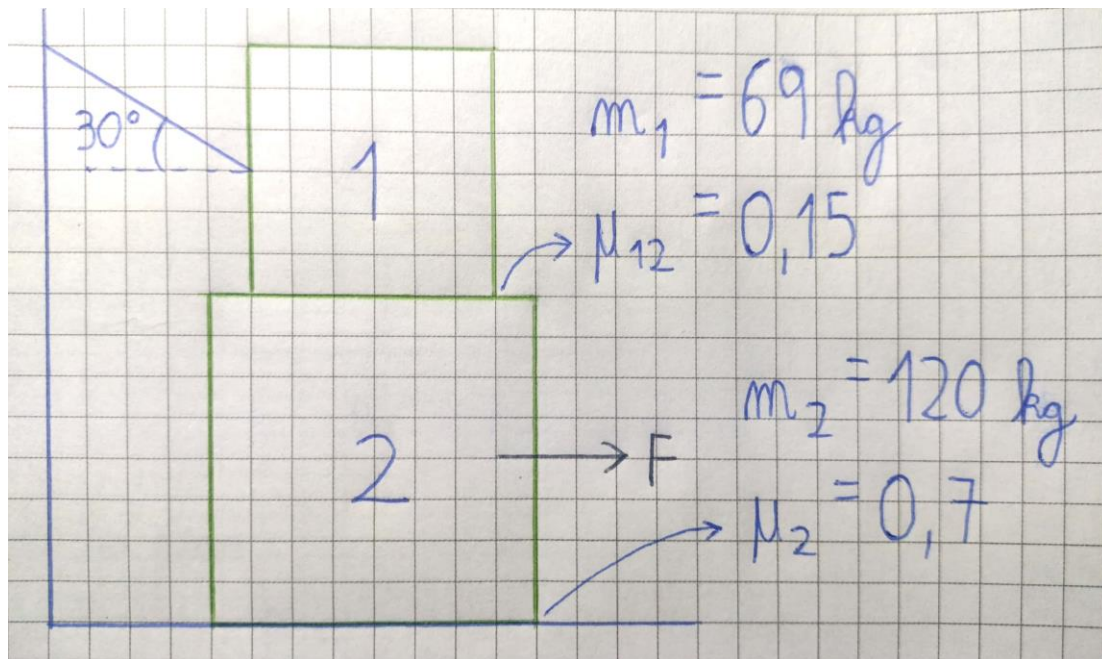 30°
1
m₁ = 69 kg
μ₁₂ = 0,15
2
F
m₂ = 120 kg
μ₂ = 0,7